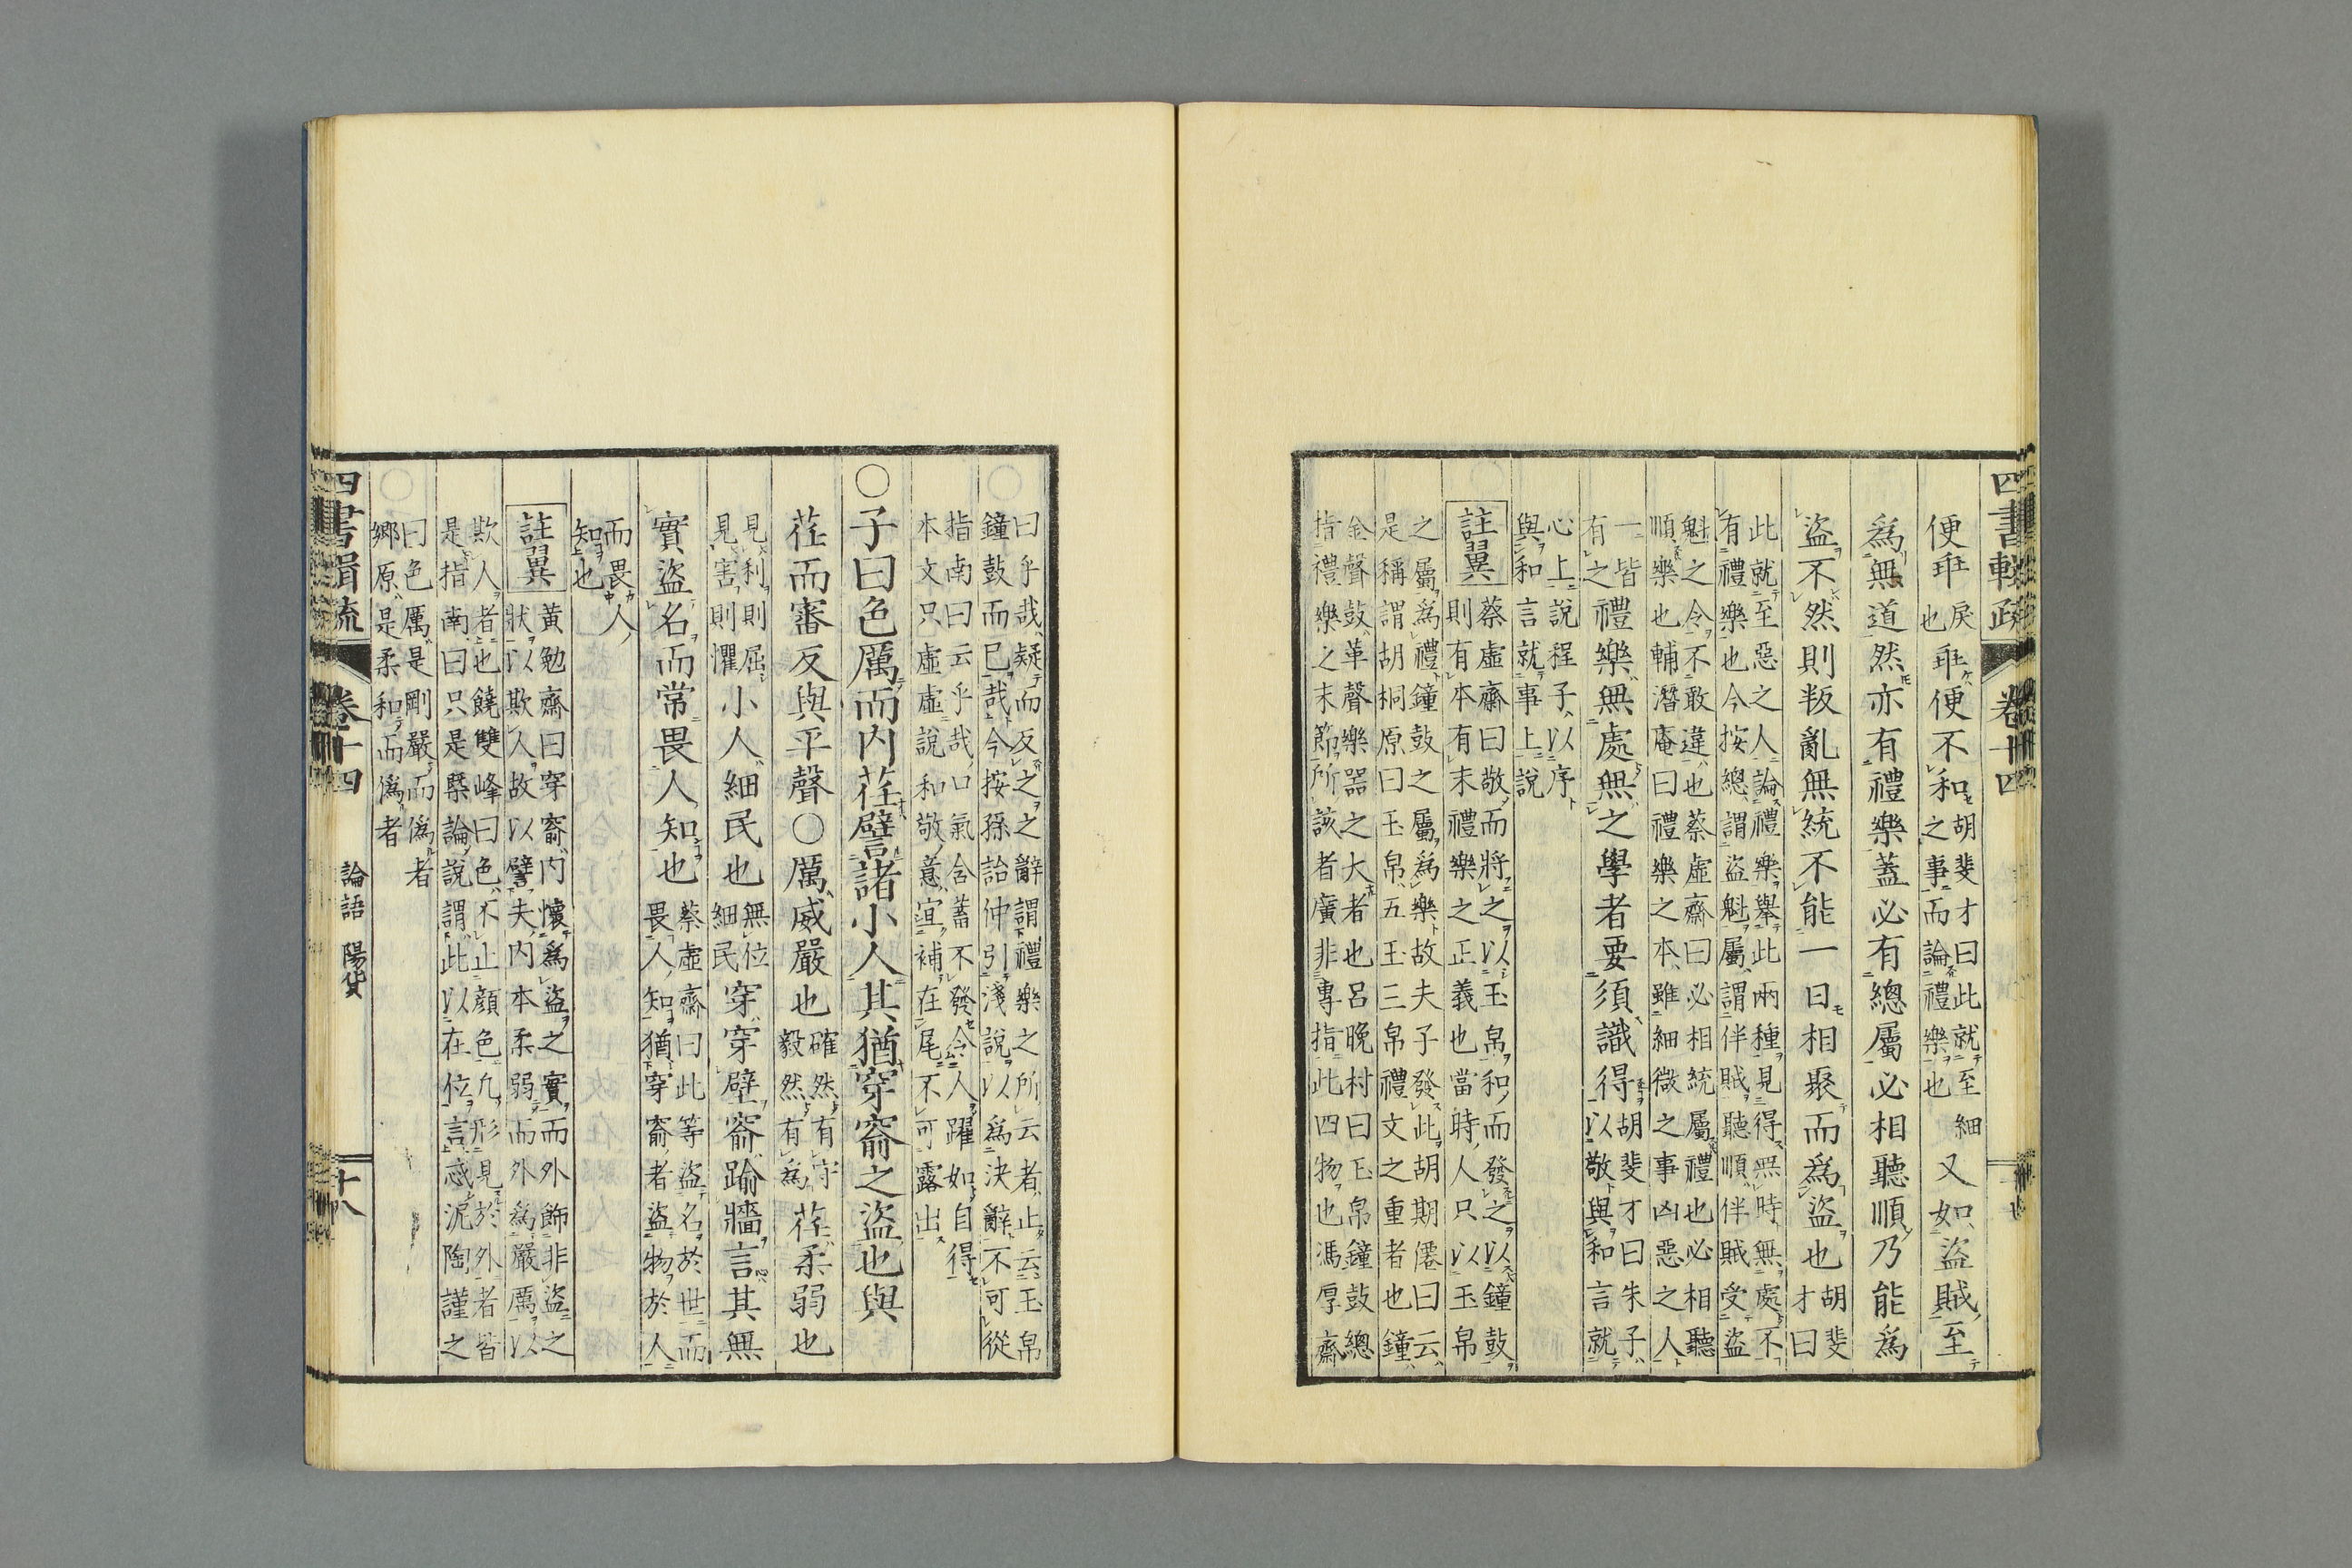 四書輯疏
卷十四
便乖戾也乖便不和之事胡斐才曰此就至細而論禮樂也又如盜賊至
爲無道然亦有禮樂蓋必有總屬必相聽順乃能爲
盜不然則叛亂無統不能一日相聚而爲盜也胡斐才曰
此就至惡之人論禮樂舉此兩種見得無時無處不
有禮樂也今按總謂盜魁屬謂伴賊聽順伴賊受盜
魁之令不敢違也蔡虛齋曰必相統屬禮也必相聽
順樂也輔潛庵曰禮樂之本雖細微之事凶惡之人
一皆有之禮樂無處無之學者要須識得胡斐才曰朱子就以敬與和言就
心上說程子以序
與和言就事上說
註翼
蔡虛齋曰敬而將之以玉帛和而發之以鐘鼓
則有本有末禮樂之正義也當時人只以玉帛
之屬爲禮鐘鼓之屬爲樂故夫子發此胡期僊曰云
是稱謂胡桐原曰玉帛五玉三帛禮文之重者也鐘
金聲鼓革聲樂器之大者也呂晚村曰玉帛鐘鼓總
指禮樂之末節所該者廣非專指此四物也馮厚齋
曰乎哉疑而反之之辭謂禮樂之所云者止云玉帛
鐘鼓而已哉今按孫詒仲引淺說以爲決辭不可從
指南曰云乎哉口氣含蓄不發令人躍如自得
本文只虛虛說和敬意宜補在尾不可露出
○子曰色厲而内荏譬諸小人其猶穿窬之盜也與
荏而審反與平聲○厲威嚴也確然有守毅然有爲荏柔弱也
見利則屈見害則懼小人細民也無位細民穿穿壁窬踰牆言其無
實盜名而常畏人知也蔡虛齋曰此等盜名於世而畏人知猶穿窬者盜物於人
而畏人
知也
註翼
黃勉齋曰穿窬內懷爲盜之實而外飾非盜之
狀以欺人故以譬夫内本柔弱而外爲嚴厲以
欺人者也饒雙峰曰色不止顔色凡形見於外者皆
是指南曰只是槩論說謂此以在位言惑泥陶謹之
曰色厲是剛嚴而僞者
鄉原是柔和而僞者
四書輯疏
卷十四
論語 陽貨
十八